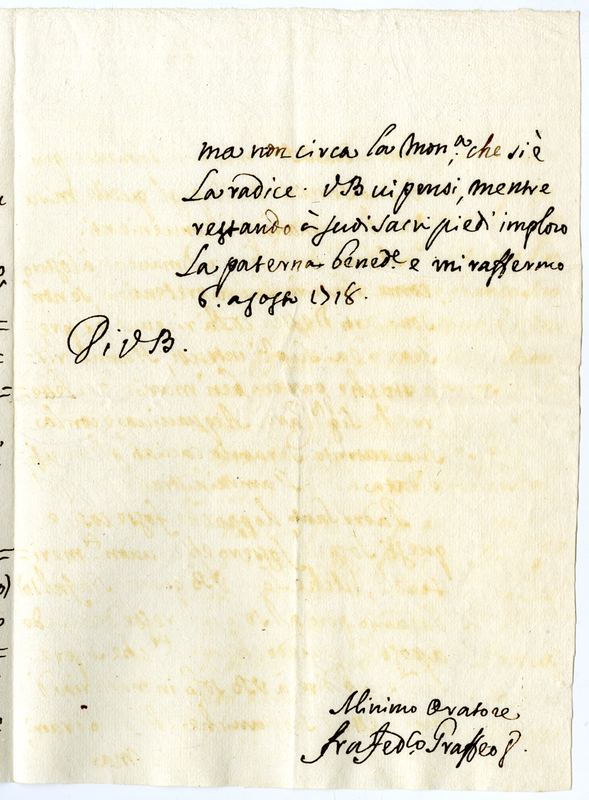 ma non circa la Mon.a, che si è
La radice. VB vi pensi, mentre
restando à suoi sacri piedi imploro
La paterna bened.e e mi raffermo
6. agosto 1718.
Di VB.
Minimo Oratore
fra Fed.co Graffeo